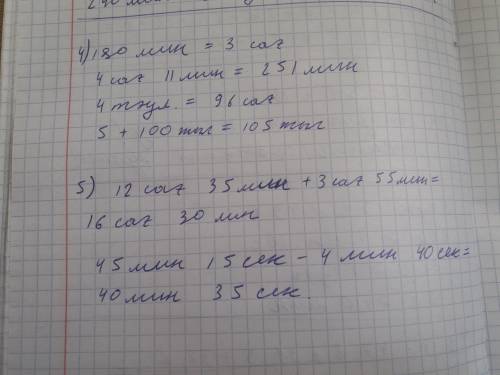 4) 180 мин = 3 сағ
4 сағ 11 мин = 251 мин
4 тәул. = 96 сағ
5 + 100 жыл = 105 жыл
5) 12 сағ 35 мин + 3 сағ 55 мин =
16 сағ 30 мин
45 мин 15 сек - 4 мин 40 сек =
40 мин 35 сек.